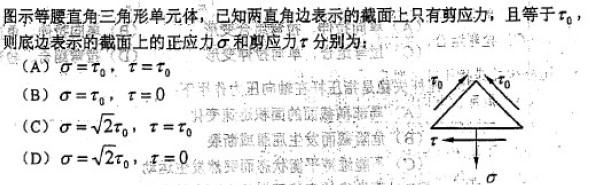 图示等腰直角三角形单元体，已知两直角边表示的截面上只有剪应力，且等于τ₀，
则底边表示的截面上的正应力σ和剪应力τ分别为：
(A) σ=τ₀，τ=τ₀
(B) σ=τ₀，τ=0
(C) σ=√2τ₀，τ=τ₀
(D) σ=√2τ₀，τ=0
τ₀ τ₀
τ
σ